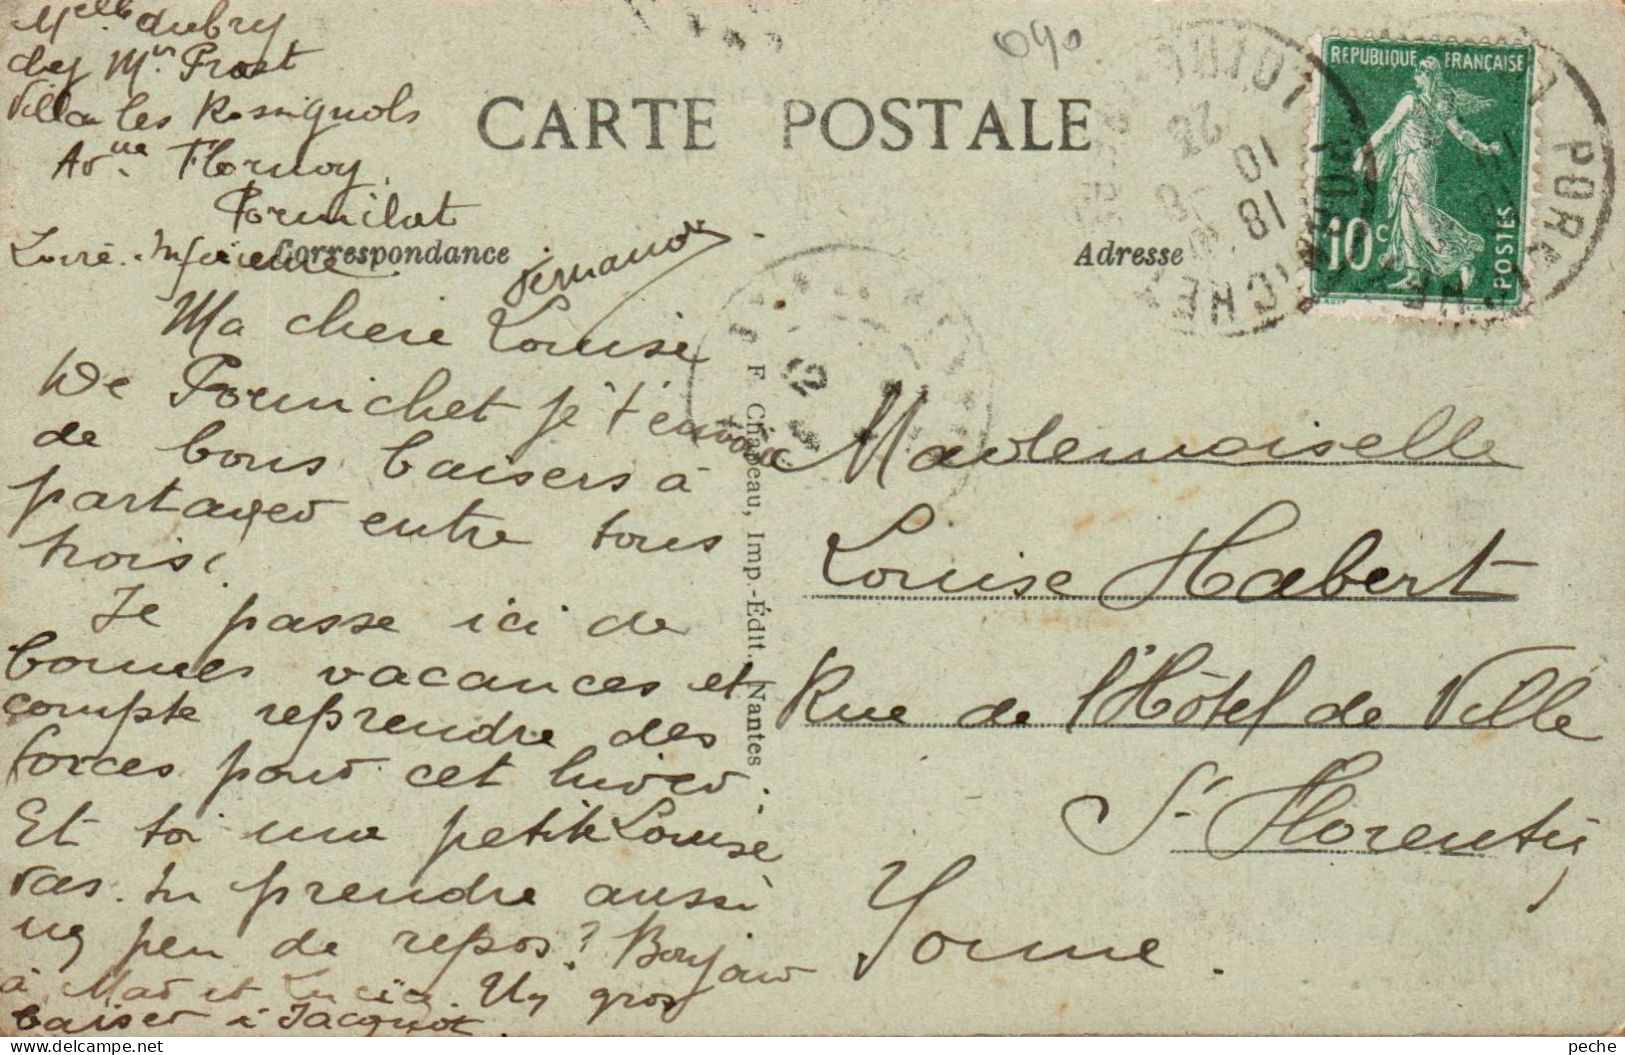 Melle Aubry
chez Mr Prost
Villa les Rossignols
Avnue Flornoy
Loire-Inférieure
CARTE POSTALE
Correspondance
Adresse
RÉPUBLIQUE FRANÇAISE
10c
POSTES
18
10
PORNICHET
12
Ma chère Louise
De Pornichet je t'envoie
de bons baisers à
partager entre tous
trois.
Je passe ici de
bonnes vacances et
compte reprendre des
forces pour cet hiver.
Et toi ma petite Louise
vas-tu prendre aussi
un peu de repos? Bonjour
à Mad et Lucien. Un gros
baiser à Jacquot.
F. Chapeau, Imp.-Édit., Nantes
Mademoiselle
Louise Habert
Rue de l'Hôtel de Ville
St Florentin
Yonne.
peche